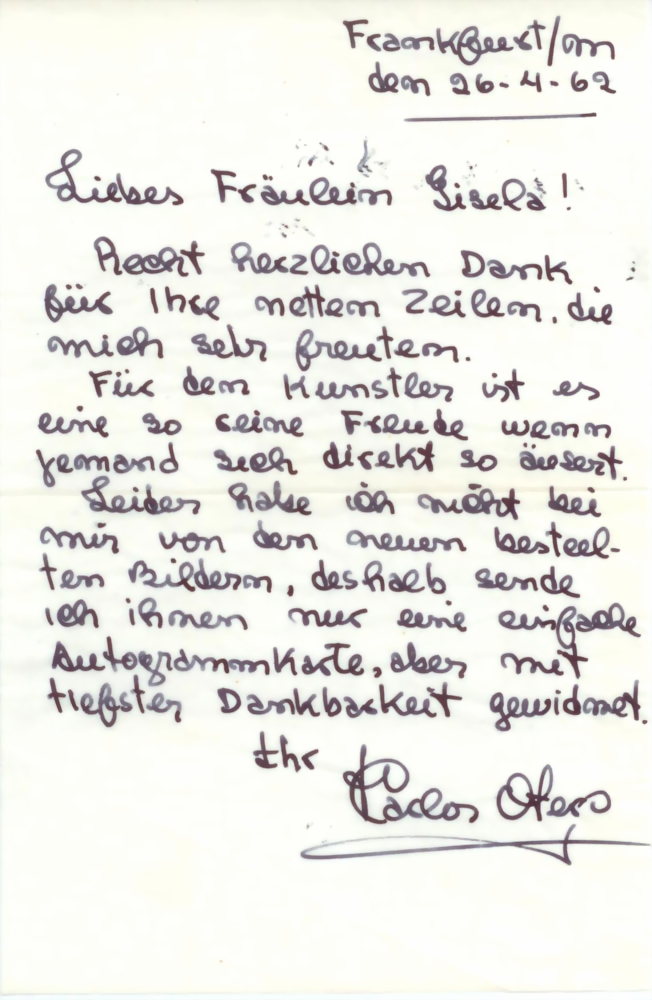 Frankfuert/m
den 26-4-62
Liebes Fräulein Gisela!
Recht herzlichen Dank
für Ihre netten Zeilen, die
mich sehr freuten.
Für den Kunstler ist es
eine so reine Freude wenn
jemand sich direkt so äusert.
Leider habe ich nicht bei
mir von den neuen besteel-
ten Bildern, deshalb sende
ich ihnen nur eine einfache
Autogrammkarte, aber mit
tiefster Dankbarkeit gewidmet.
Ihr Carlos Otero